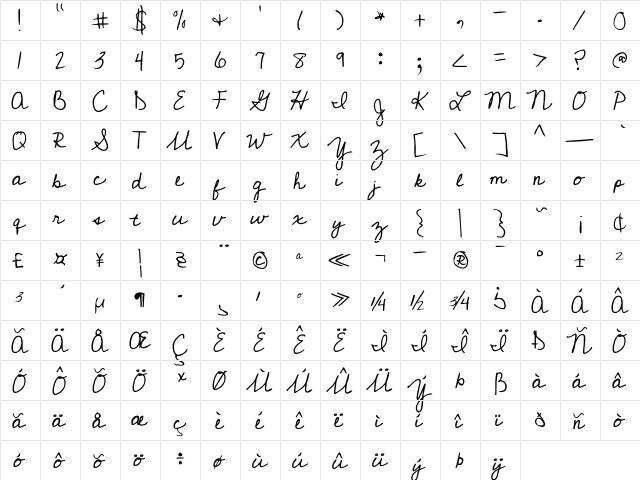 ! " # $ % & ' ( ) * + , - . / 0
1 2 3 4 5 6 7 8 9 : ; < = > ? @
A B C D E F G H I J K L M N O P
Q R S T U V W X Y Z [ \ ] ^ _ `
a b c d e f g h i j k l m n o p
q r s t u v w x y z { | } ~ ¡ ¢
£ ¤ ¥ ¦ § ¨ © ª « ¬ ­¯ ® ¯ ° ± ²
³ ´ µ ¶ · ¸ ¹ º » ¼ ½ ¾ ¿ À Á Â
Ã Ä Å Æ Ç È É Ê Ë Ì Í Î Ï Ð Ñ Ò
Ó Ô Õ Ö × Ø Ù Ú Û Ü Ý Þ ß à á â
ã ä å æ ç è é ê ë ì í î ï ð ñ ò
ó ô õ ö ÷ ø ù ú û ü ý þ ÿ